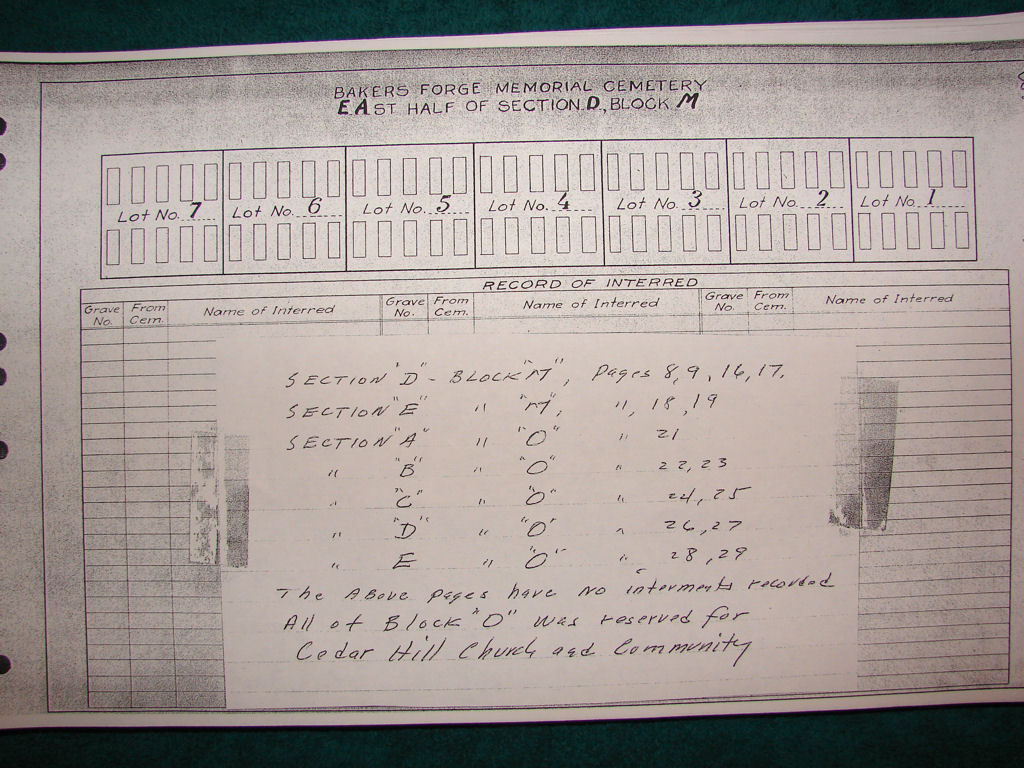 BAKERS FORGE MEMORIAL CEMETERY
EAST HALF OF SECTION D, BLOCK M
Lot No. 7 Lot No. 6 Lot No. 5 Lot No. 4 Lot No. 3 Lot No. 2 Lot No. 1
RECORD OF INTERRED
Grave No. From Cem. Name of Interred Grave No. From Cem. Name of Interred Grave No. From Cem. Name of Interred
SECTION "D" - BLOCK "M", Pages 8, 9, 16, 17.
SECTION "E" " "M", ", 18, 19
SECTION "A" " "O" " 21
" "B" " "O" " 22, 23
" "C" " "O" " 24, 25
" "D" " "O" " 26, 27
" E " "O" " 28, 29
The Above pages have No interments recorded
All of Block "O" was reserved for
Cedar Hill Church and Community